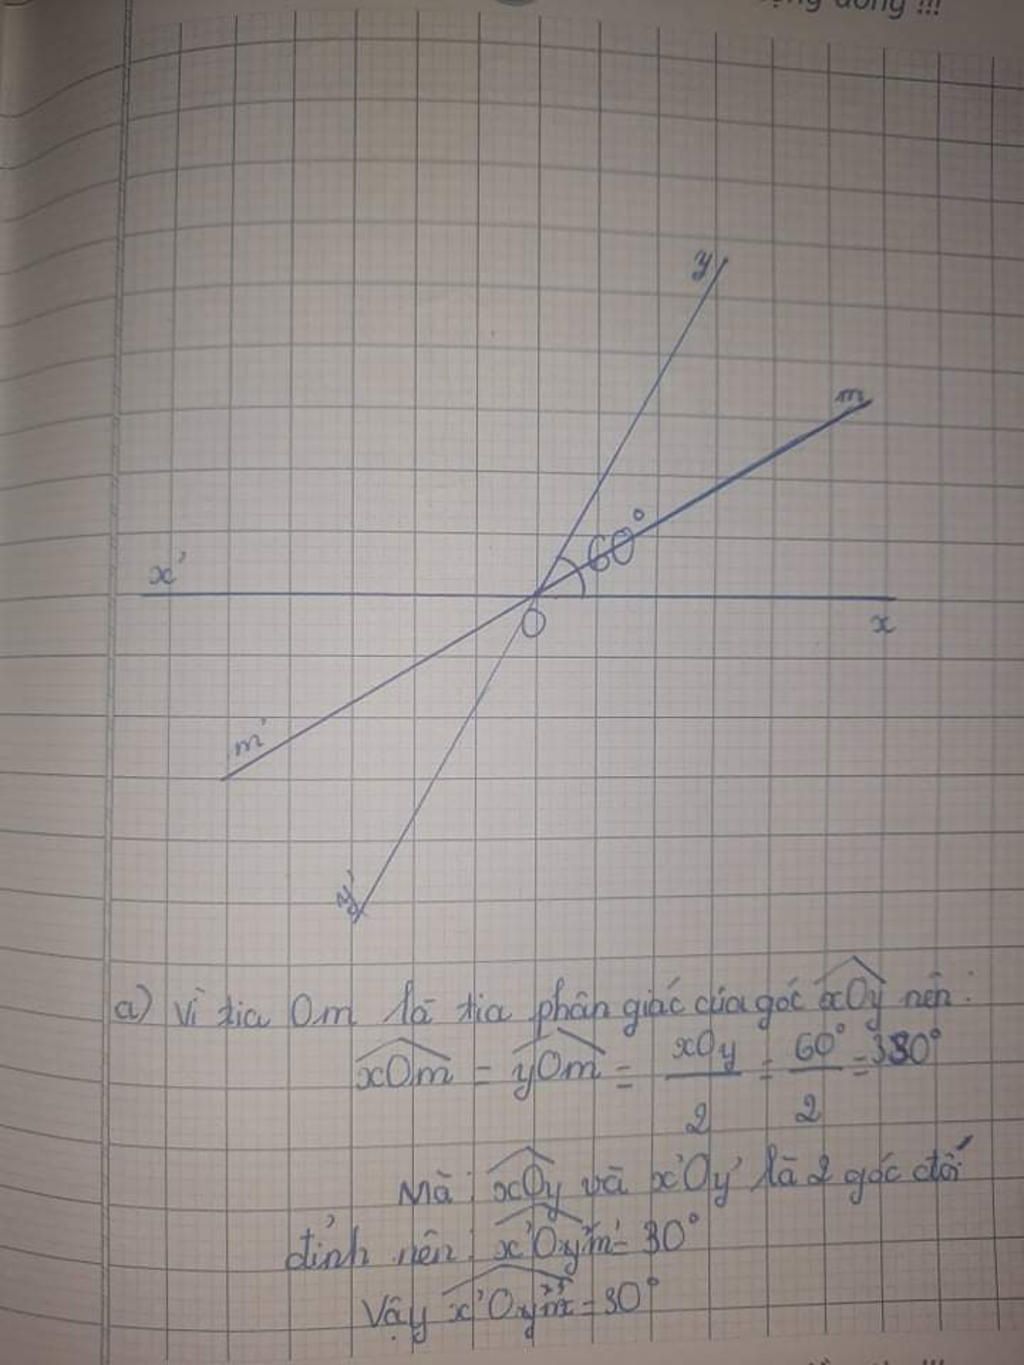 ng đồng !!!
y
m
60°
x'
O
x
m'
y'
a) Vì tia Om là tia phân giác của góc xOy nên:
xOm = yOm = xOy / 2 = 60° / 2 = 30°
Mà: xOy và x'Oy' là 2 góc đối
đỉnh nên: x'Om' = 30°
Vậy x'Om' = 30°